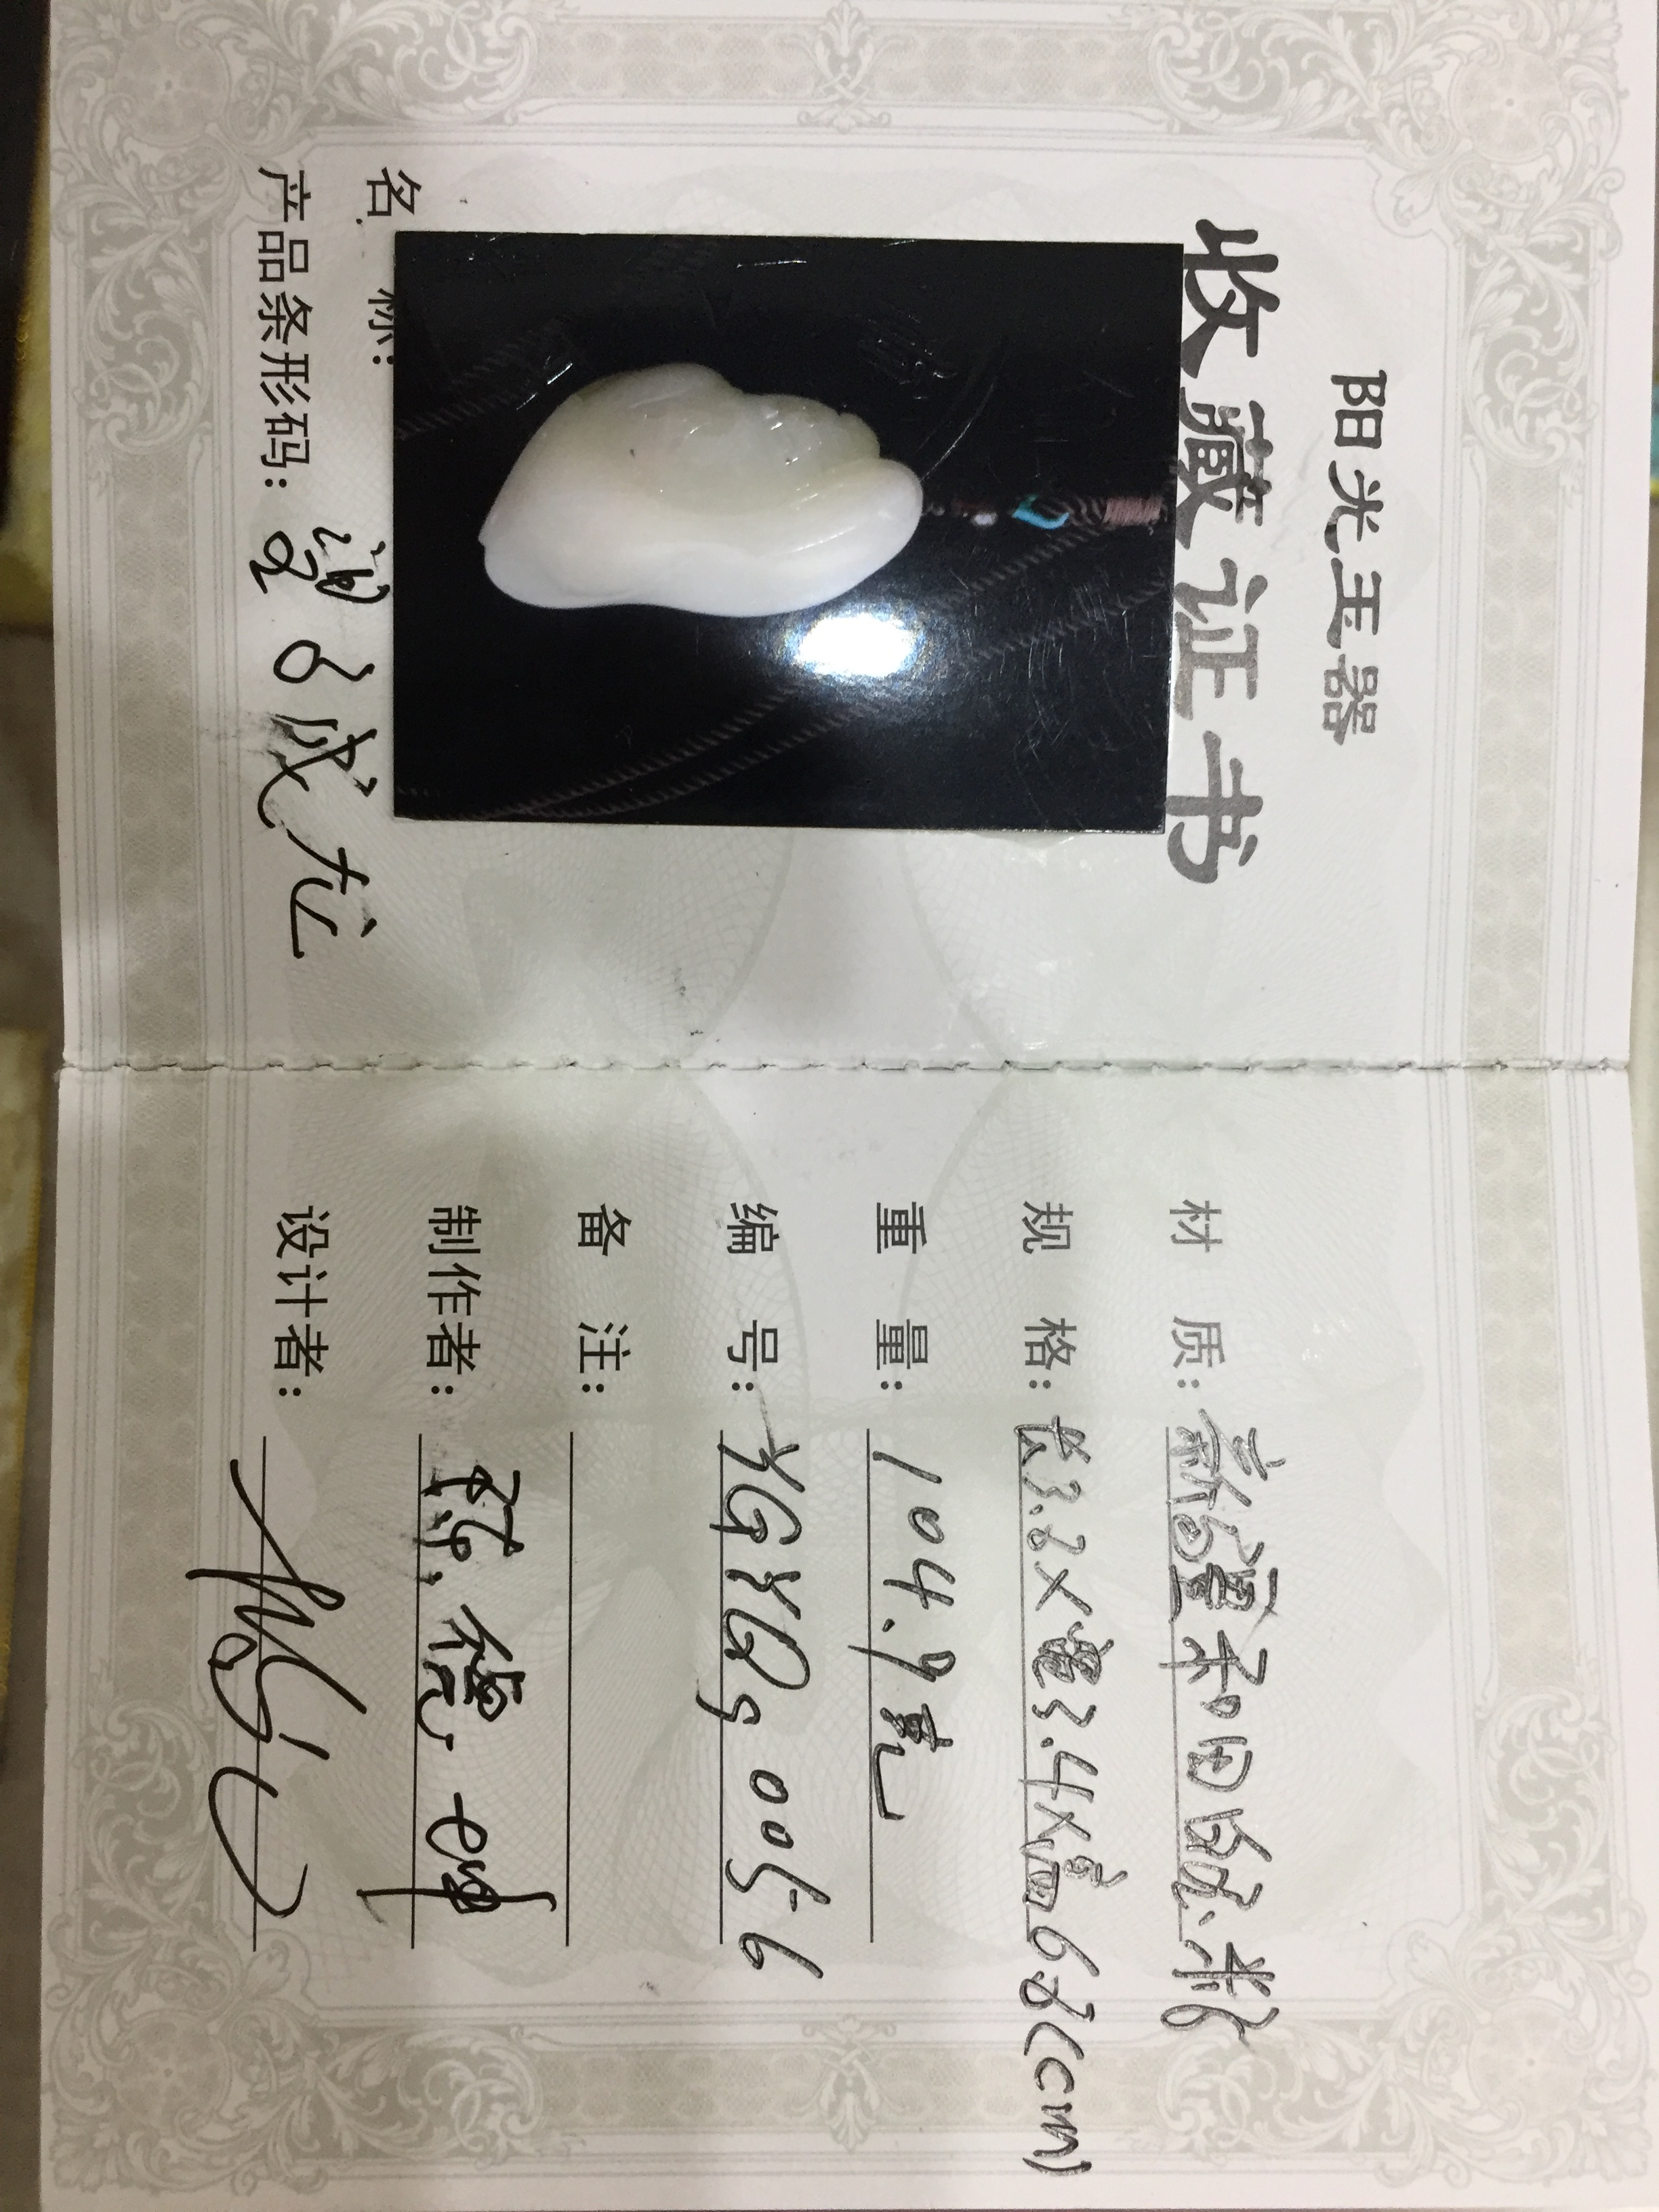 阳光玉器
收藏证书
名 称:
产品条形码: 望子成龙
材 质: 新疆和田白玉籽
规 格: 长3.8×宽3.4×高6.8(cm)
重 量: 104.9克
编 号: YGYQs0056
备 注:
制作者: 陈德
设计者: